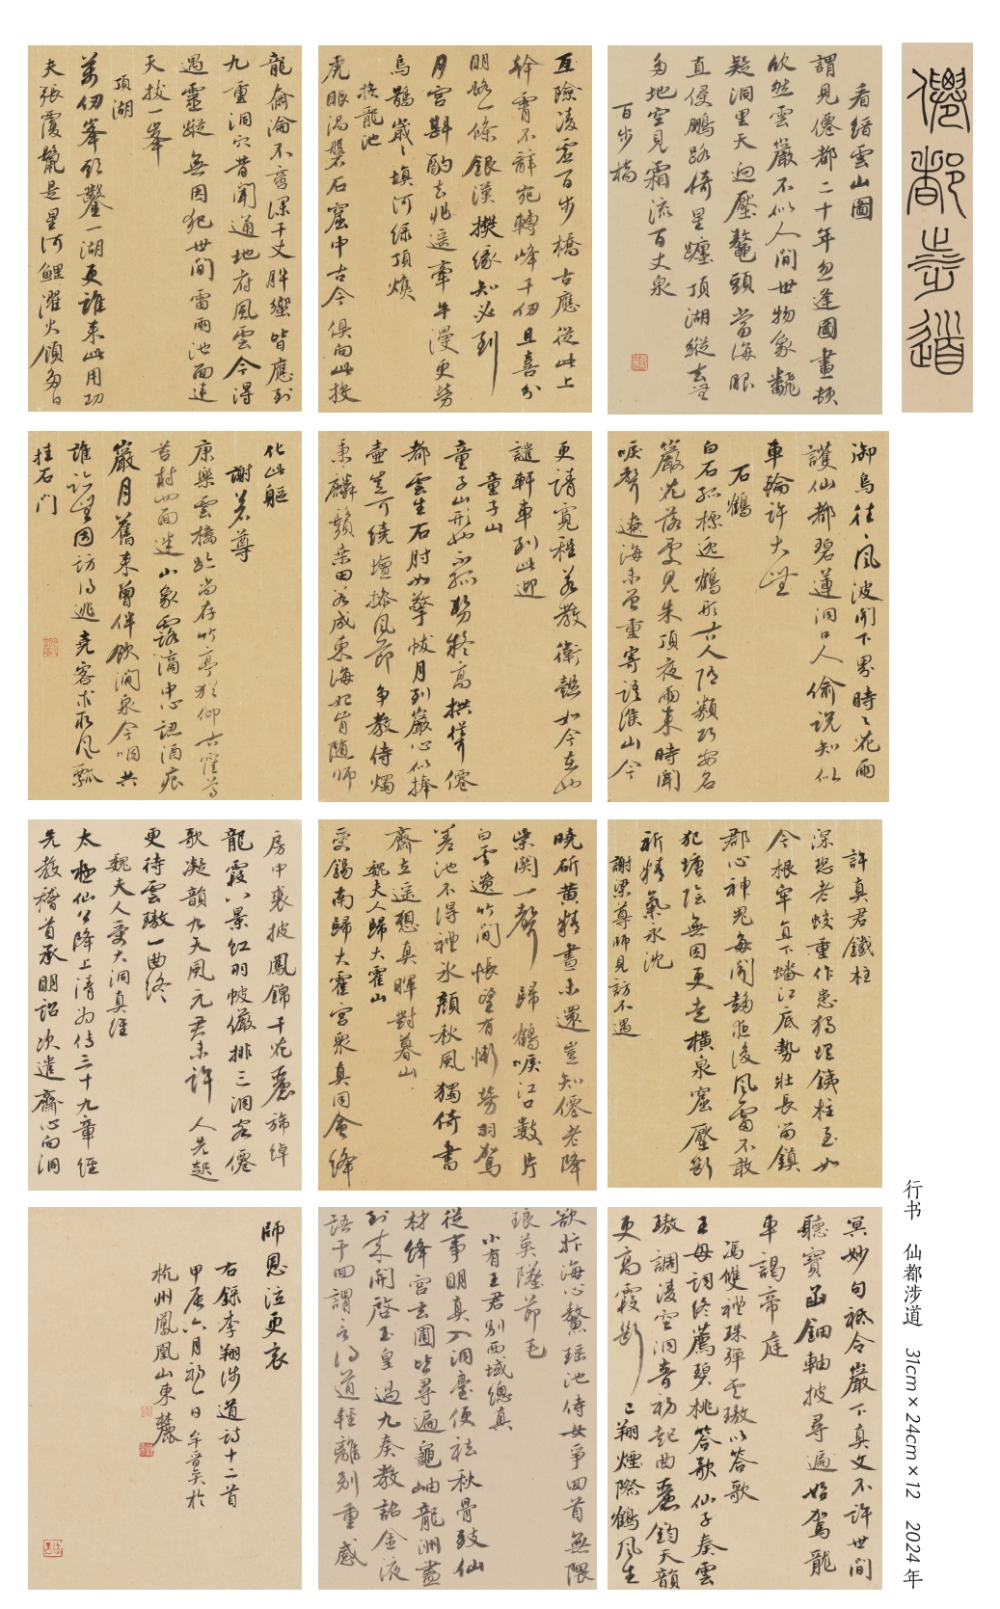 僊都涉道
看縉雲山圖
謂見僊都二十年忽逢圖畫頓
欣然雲巖不似人間世物象翻
疑洞里天迥壓鼇頭當海眼
直侵鵬路倚星躔頂湖縱去登
多地空見霜流百丈泉
百步橋
亙險凌虛百步橋古應從此上
幹霄不辭宛轉峰千仞且喜分
明路一條銀漢攀緣知必到
月宮斟酌去非遙牽牛漫更勞
烏鵲歲々填河綠頂燋
換龍池
虎眼渦盤石窟中古今俱向此投
龍奫淪不寫深千丈肸蠁皆應到
九重洞穴昔聞通地府風雲今得
遇靈蹤無因犯世間雷雨池面連
天拔一峯
頂湖
萬仞峯頭鑿一湖更誰來此用功
夫張覆鬣是星河鯉濯火須為日
御烏往々風波聞下界時々花雨
護仙都碧蓮洞口人偷說知似
車輪許大無
石鶴
白石孤標逸鶴形古人隨類巧安名
巖花落處見朱頂夜雨來時聞
唳聲遼海未曾重寄語緱山今
更請寬程若教衛懿如今在必
詔軒車到此迎
童子山
童子山形如不孤勢移高拱僕僊
都雲生石肘如擎帔月到巖心似捧
壺豈可繞壇捧鳳節争教侍燭
秉麟鬚桑田若成東海妃肯隨師
化此軀
謝客尊
康樂雲橋跡尚存竹亭猶仰古窪尊
苔封四面迷山象露滴中心認酒痕
巖月舊來曾伴飲澗泉今咽共
誰論因訪得逃堯客求取風瓢
挂石門
許真君鐵柱
深恐老蛟重作患獨埋鐵柱至如
今根牢直下蟠江底勢壯長留鎮
郡心神鬼每聞胆後風雷不敢
犯塘陰無因更走橫泉窟壓斷
祈精氣永沈
謝梁尊師見訪不遇
曉斫黃精晝未還豈知僊老降
柴關一聲歸鶴唳江口數片
白雲遺竹間悵望有慚勞羽駕
差池不得禮冰顏秋風獨倚書
齋立遥想真暉對暮山
魏夫人歸大霍山
受錫南歸大霍宮衆真同會絳
房中裳披鳳錦千花麗旆綽
龍霞八景紅羽帔儼排三洞客僊
歌凝韻九天風元君未許人先起
更待雲璈一曲終
魏夫人受大洞真經
太極仙公降上清為傳三十九章經
先教稽首承明詔次遣齋心向洞
冥妙句祗令嚴下真文不許世間
聽寶函鈿軸披尋遍始駕龍
車謁帝庭
馮雙禮珠彈雲璈以答歌
王母詞終薦碧桃答歌仙子奏雲
璈調淩空洞音初起曲麗鈞天韻
更高霞影已翔煙際鶴風生
欲抃海心鰲瑤池侍女爭回首無限
琅英隆節旄
小有王君別西域總真
從事明真入洞臺便祛秋骨致仙
材絳宮玄圃皆尋遍龜岫龍洲盡
到來開啓玉皇過九奏教諮金液
語千回謂言得道輕離別重感
師恩泣更衣
右錄李翔涉道詩十二首
甲辰六月初一日牟晋昊於
杭州鳳凰山東麓
行书 仙都涉道 31cm×24cm×12 2024年